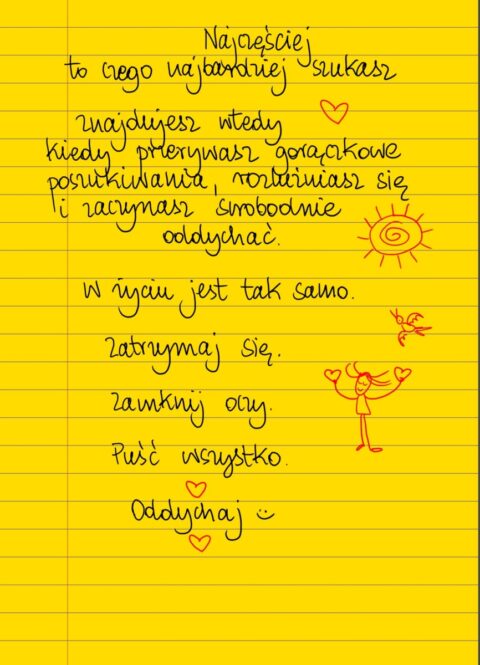 Najczęściej
to czego najbardziej szukasz
znajdujesz wtedy
kiedy przerywasz gorączkowe
poszukiwania, rozluźniasz się
i zaczynasz swobodnie
oddychać.
W życiu jest tak samo.
Zatrzymaj się.
Zamknij oczy.
Puść wszystko.
Oddychaj :)